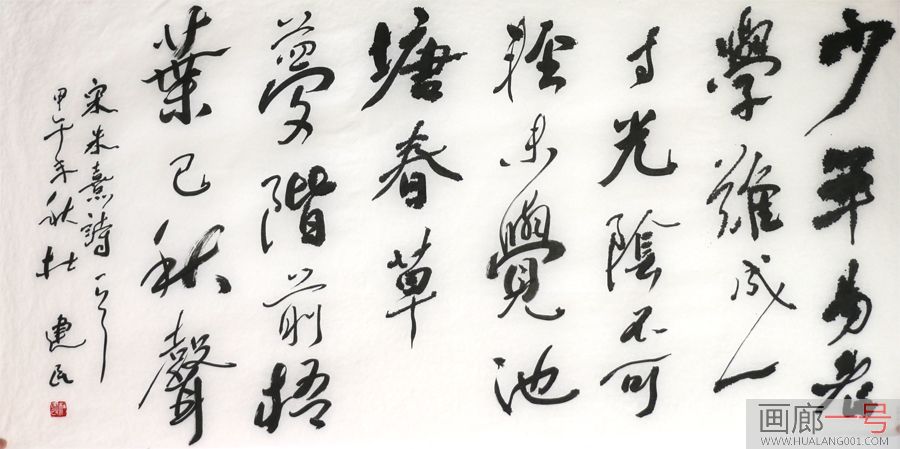 少年易老
學難成一
寸光陰不可
輕未覺池
塘春草
夢階前梧
葉已秋聲
宋朱熹詩一首
甲午年秋杜建民
画廊一号
WWW.HUALANG001.COM